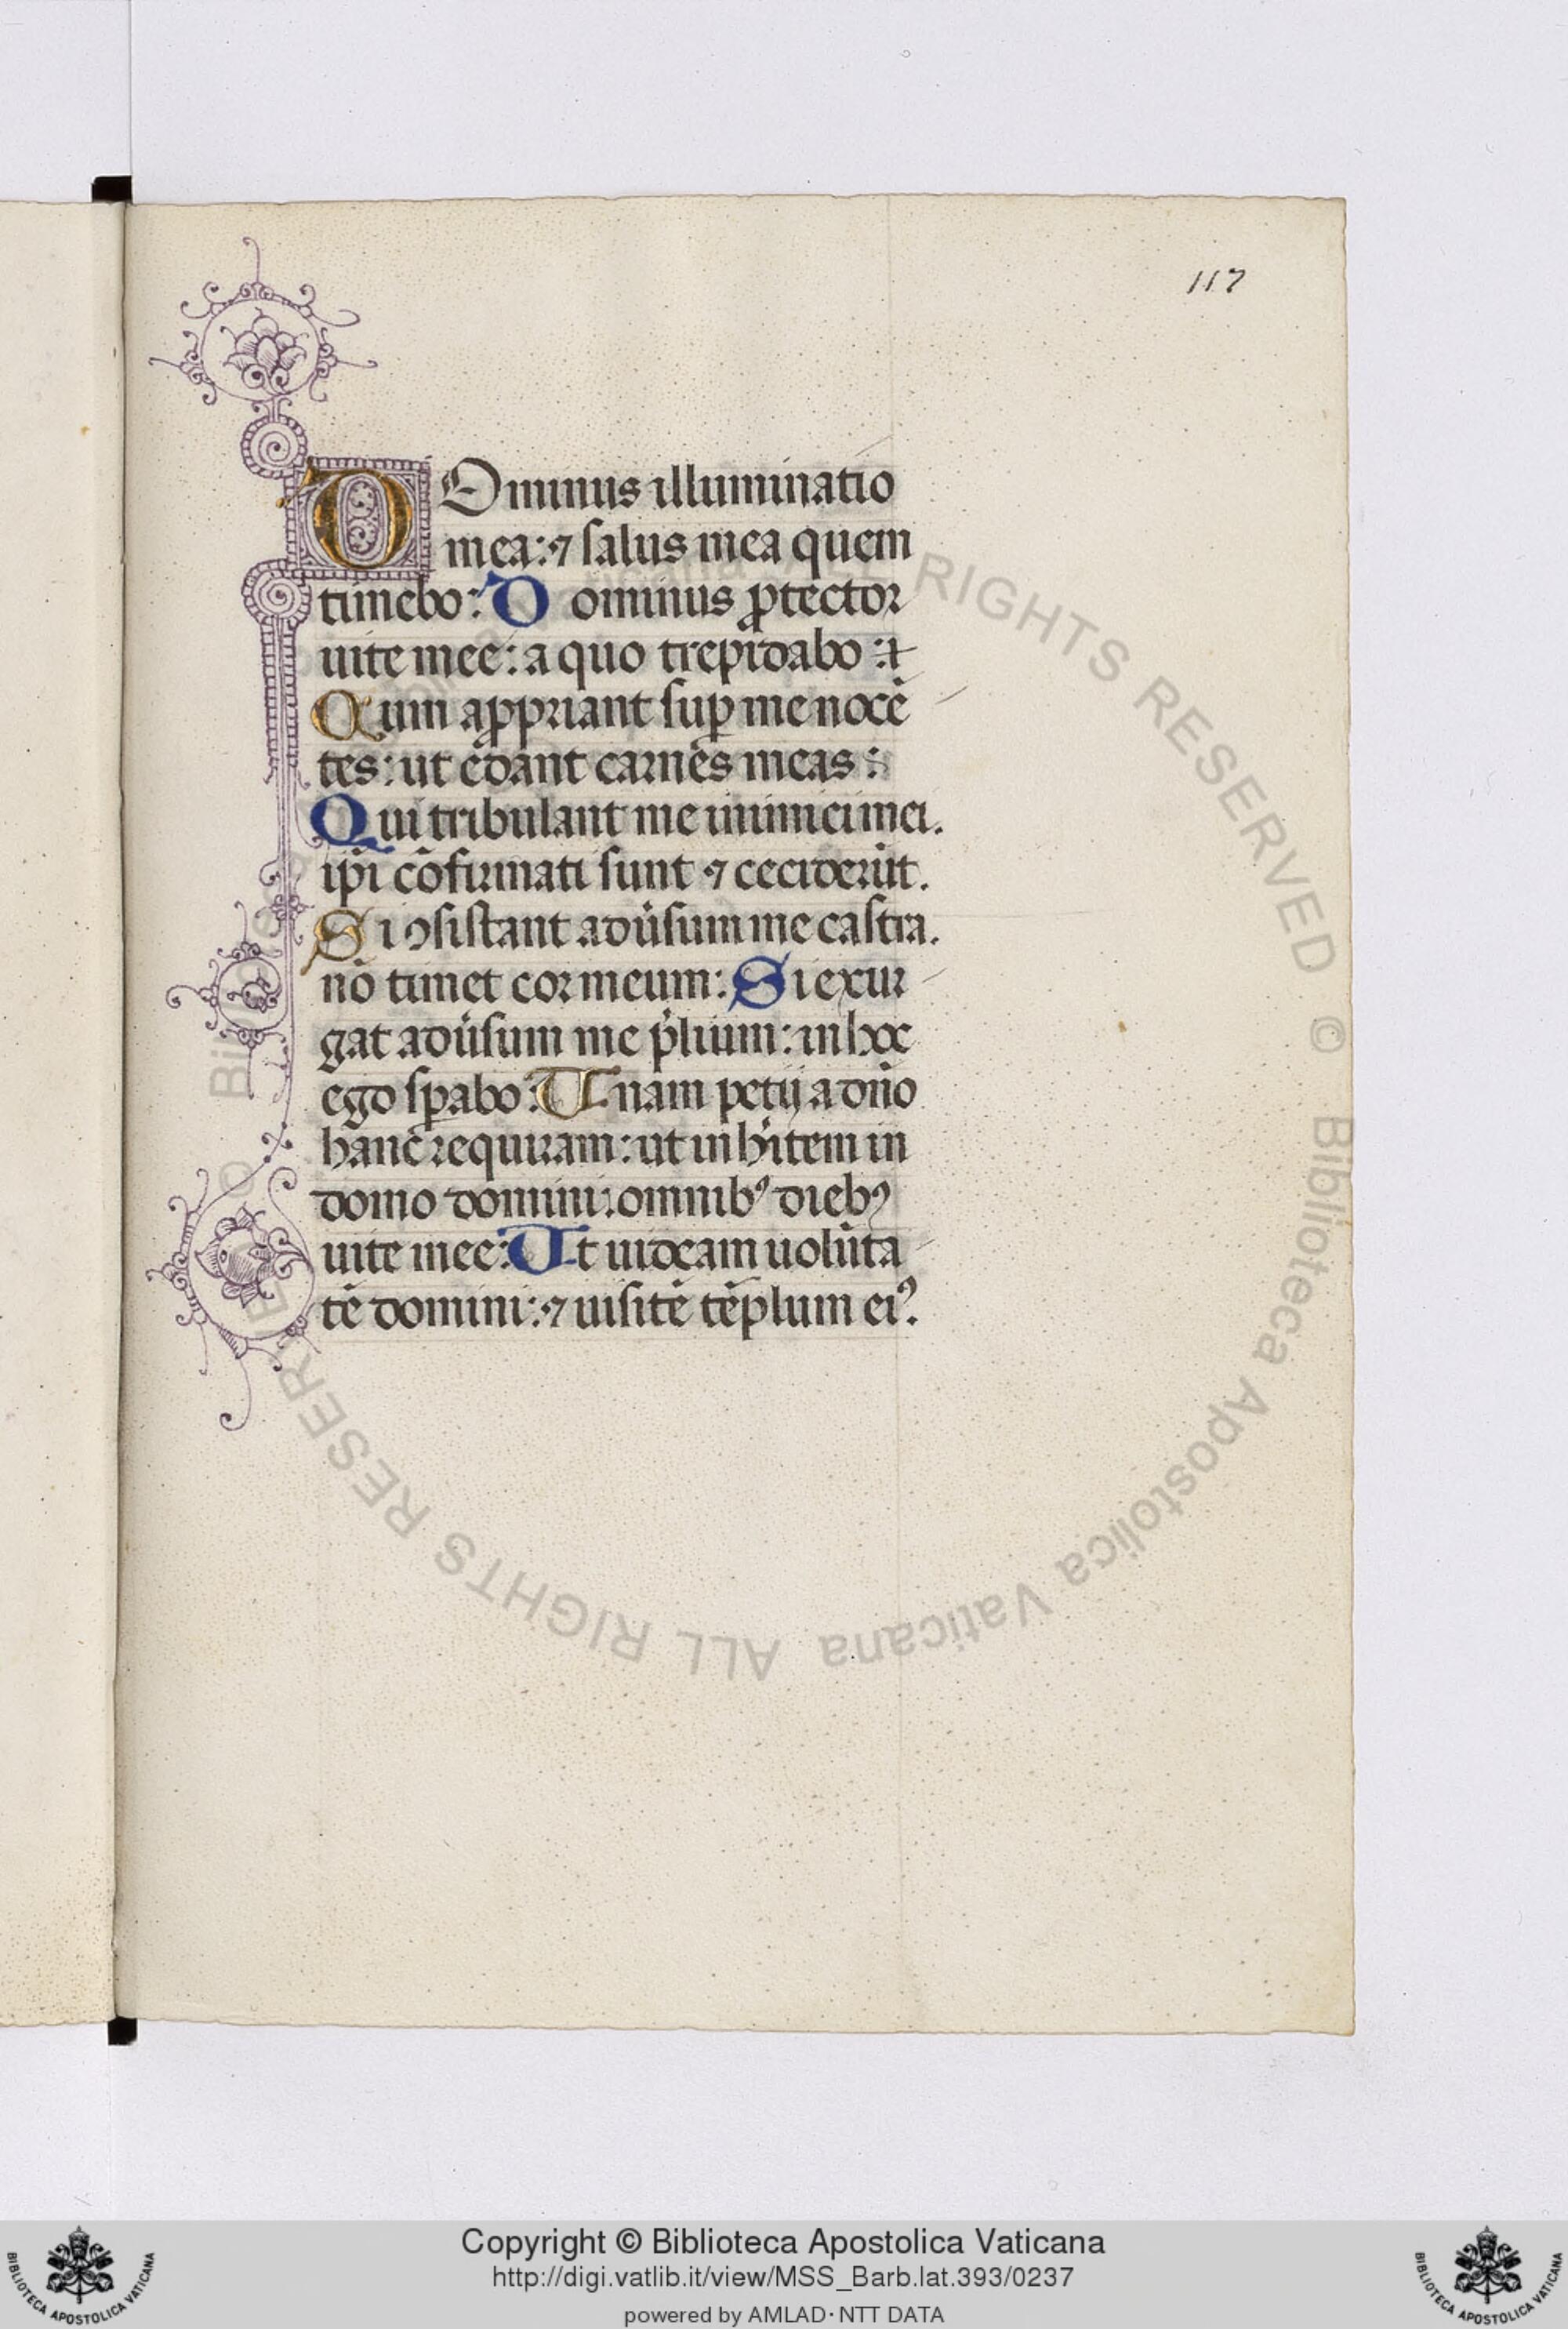 117
DOminus illuminatio
mea: ⁊ salus mea quem
timebo: Dominus ꝓtector
uite mee: a quo trepidabo :
Qum aꝓpriant suꝑ me nocē
tes: ut edant carnes meas :
Qui tribulant me inimici mei.
ip̄i cōfirmati sunt ⁊ cecider̄ut.
Si ꝯsistant adu̾sum me castra.
nō timet cor meum: Si exur
gat adu̾sum me p̄lium: in hoc
ego sꝑabo: Unam petij a dn̄o
hanc requiram: ut inh̾item in
domo domini: omnibꝰ diebꝰ
uite mee: Ut uideam uolūta
tē domini: ⁊ uisitē tēplum eiꝰ.
© Biblioteca Apostolica Vaticana ALL RIGHTS RESERVED
Copyright © Biblioteca Apostolica Vaticana
http://digi.vatlib.it/view/MSS_Barb.lat.393/0237
powered by AMLAD·NTT DATA
BIBLIOTECA APOSTOLICA VATICANA
BIBLIOTECA APOSTOLICA VATICANA